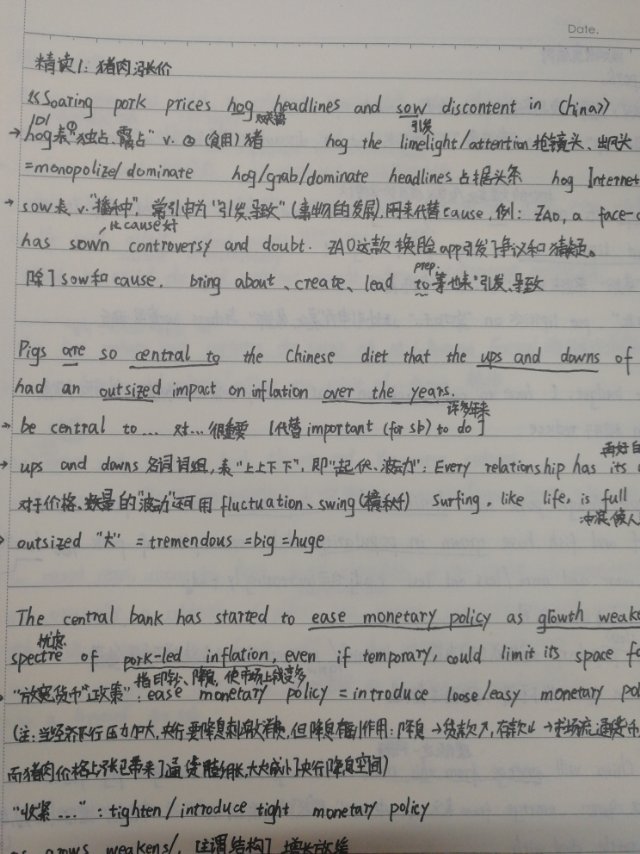 Date.
精读1：猪肉涨价
《Soaring pork prices hog headlines and sow discontent in China》
引发
→ hog表"①独占、霸占" v. ②(食用)猪 hog the limelight/attention 抢镜头、出风头
=monopolize/dominate hog/grab/dominate headlines 占据头条 hog Internet
→ sow表 v."播种", 常引申为"引发、导致"(事物的发展), 用来代替cause, 例: ZAO, a face-
比cause好
has sown controversy and doubt. ZAO这款换脸app引发了争议和猜疑。
prep.
除了sow和cause, bring about、create、lead to等也表"引发、导致
Pigs are so central to the Chinese diet that the ups and downs of
had an outsized impact on inflation over the years.
许多年来
→ be central to ... 对...很重要 [代替important (for sb) to do]
→ ups and downs 名词词组, 表"上上下下", 即"起伏、波动": Every relationship has its
对于价格、数量的"波动"还可用fluctuation、swing surfing, like life, is full
→ outsized "大" = tremendous =big =huge
The central bank has started to ease monetary policy as growth
忧虑
spectre of pork-led inflation, even if temporary, could limit its space
指印钞、降息, 使市场上钱变多
"放宽货币政策": ease monetary policy = introduce loose/easy monetary
(注: 当经济下行压力中大, 央行要降息刺激消费, 但降息有副作用: 降息→贷款↗, 存款↓→市场流通货币
而猪肉价格上涨已带来了通货膨胀, 大大减小了央行降息空间)
"收紧...": tighten/introduce tight monetary policy
grows weakens/. [主谓结构] 增长放缓